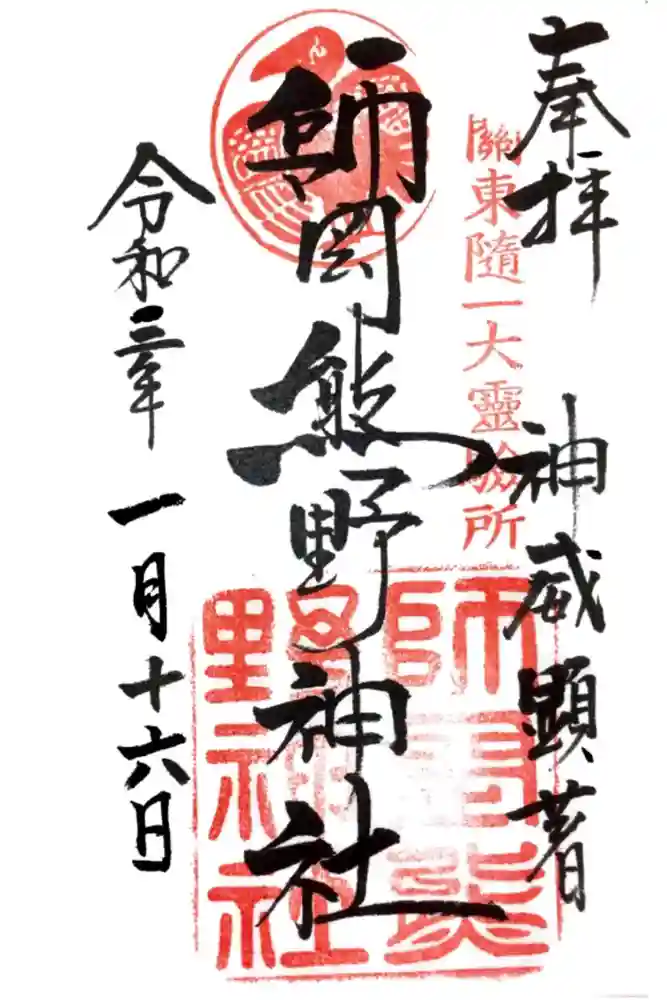 奉拝
神威顕著
關東随一大靈驗所
師岡熊野神社
師岡熊
野神社
令和三年
一月十六日